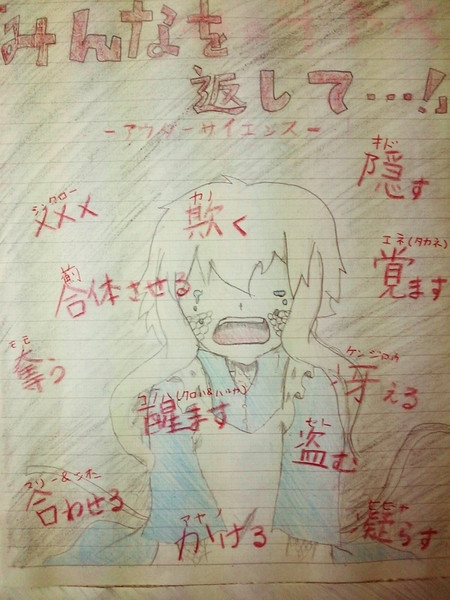 みんなを
返して…!」
-アウターサイエンス-
キド
隠す
カノ
欺く
シンタロー
メメメ
エネ(タカネ)
覚ます
合体させる
モモ
奪う
ケンジロウ
冴える
コノハ(クロハ&ハルカ)
醒ます
セト
盗む
マリー&シオン
合わせる
アヤノ
かける
ヒビヤ
凝らす